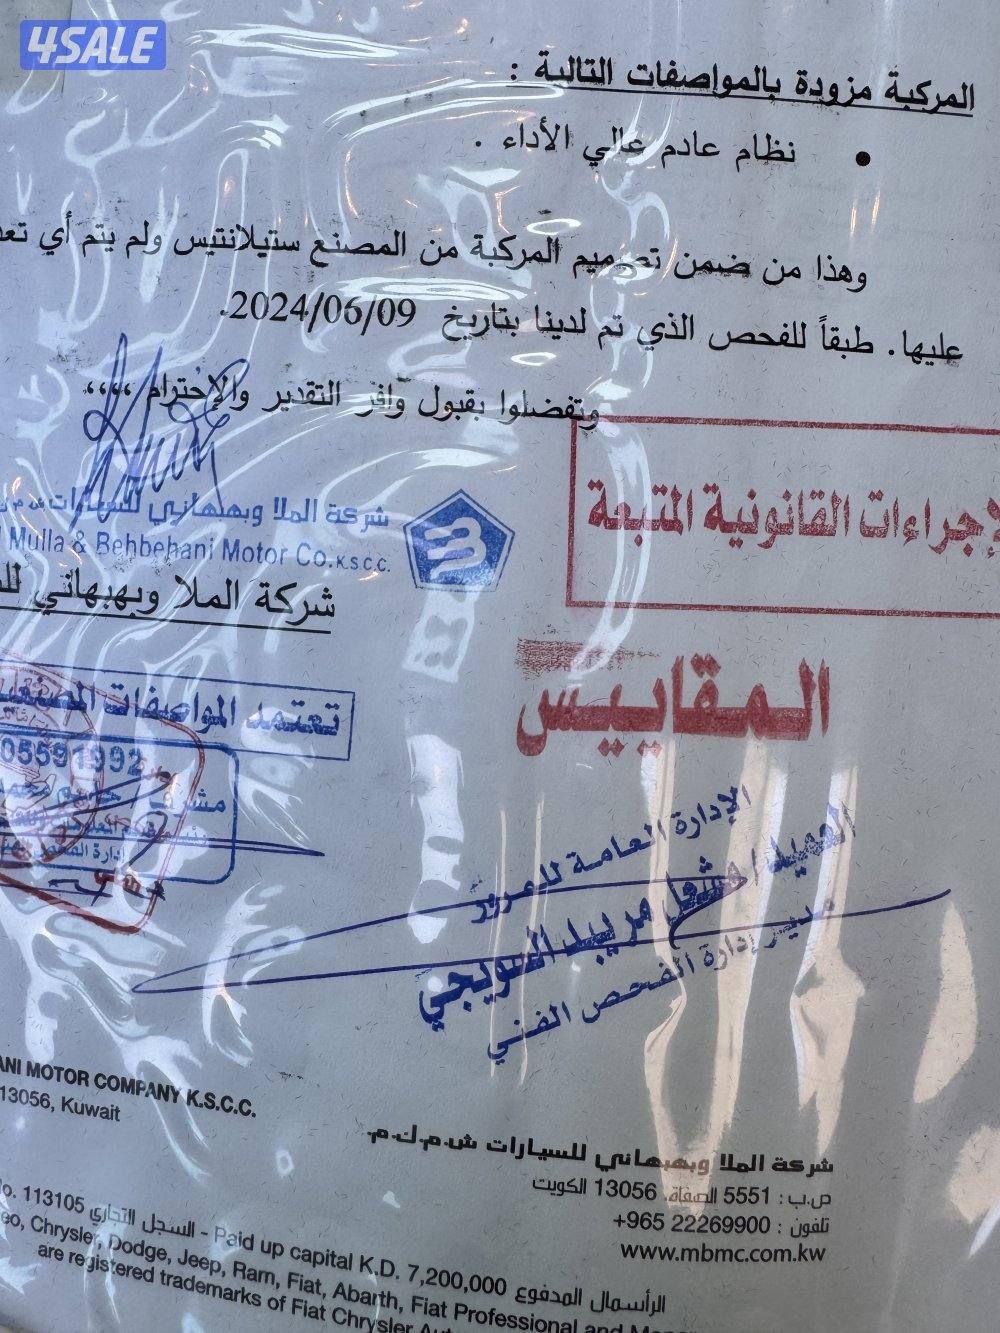 4SALE
المركبة مزودة بالمواصفات التالية :
• نظام عادم عالي الأداء .
وهذا من ضمن تصميم المركبة من المصنع ستيلانتيس ولم يتم أي
عليها. طبقاً للفحص الذي تم لدينا بتاريخ 2024/06/09.
وتفضلوا بقبول وافر التقدير والإحترام ،،،،
شركة الملا وبهبهاني للسيارات ش.م.ك.م
Mulla & Behbehani Motor Co.K.S.C.C.
شركة الملا وبهبهاني
القانونية المتبعة
المقاييس
تعتمد المواصفات المصنعية
05591992
مشرف
إدارة الفحص
الإدارة العامة للمرور
العميد / مشعل مريبد السويجي
مدير إدارة الفحص الفني
MOTOR COMPANY K.S.C.C.
13056, Kuwait
شركة الملا وبهبهاني للسيارات ش.م.ك.م.
ص.ب : 5551 الصفاة، 13056 الكويت
تلفون : 22269900 965+
www.mbmc.com.kw
113105 السجل التجاري - Paid up capital K.D. 7,200,000 الرأسمال المدفوع
Chrysler, Dodge, Jeep, Ram, Fiat, Abarth, Fiat Professional and
are registered trademarks of Fiat Chrysler